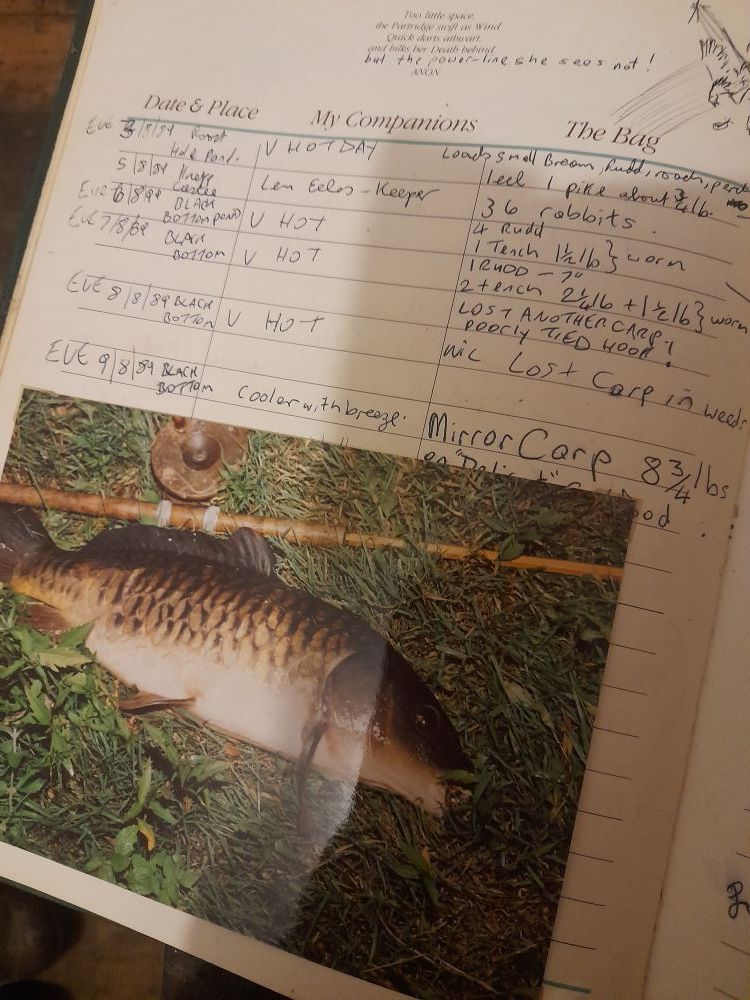 Too little space,
the Partridge swift as Wind
Quick darts athwart,
and bilks her Death behind
but the power-line she sees not!
ANON
Date & Place My Companions The Bag
EVE 3/8/89 Roost Hole Pond. V HOT DAY Loads small Bream, Rudd, roach, perch
1 eel 1 pike about 3/4 lb.
5/8/89 Knepp Castle Len Eeles - Keeper 36 rabbits.
EVE 6/8/89 BLACK BOTTOM pond V HOT 4 Rudd
1 Tench 1 1/2 lb } worm
EVE 7/8/89 BLACK BOTTOM V HOT 1 RUDD - 7"
2 tench 2 1/4 lb + 1 1/2 lb } worm
LOST ANOTHER CARP!
POORLY TIED HOOK!
EVE 8/8/89 BLACK BOTTOM V HOT NIL Lost Carp in weed.
EVE 9/8/89 BLACK BOTTOM Cooler with breeze. Mirror Carp 8 3/4 lbs
on